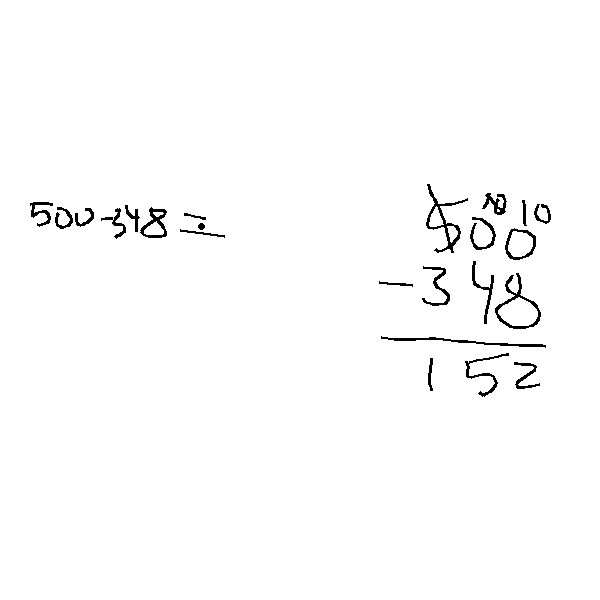 500-348=
10 10
500
-348
152